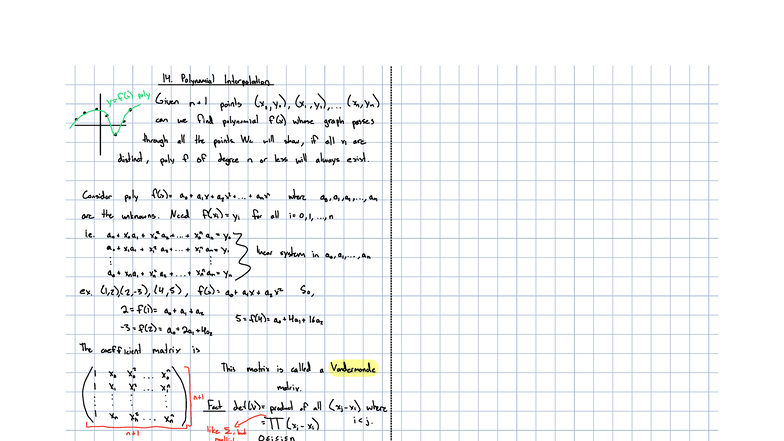 14. Polynomial Interpolation
y=f(x) poly
Given n+1 points (x₀,y₀), (x₁,y₁),... (xₙ,yₙ)
can we find polynomial f(x) whose graph passes
through all the points. We will show, if all x are
distinct, poly f of degree n or less will always exist.
Consider poly f(x)= a₀ + a₁x + a₂x² + ... + aₙxⁿ where a₀,a₁,a₂,...,aₙ
are the unknowns. Need f(xᵢ) = yᵢ for all i=0,1,...,n
i.e. a₀ + x₀a₁ + x₀²a₂ + ... + x₀ⁿaₙ = y₀
a₀ + x₁a₁ + x₁²a₂ + ... + x₁ⁿaₙ = y₁
linear system in a₀,a₁,...,aₙ
⋮ ⋮
a₀ + xₙa₁ + xₙ²a₂ + ... + xₙⁿaₙ = yₙ
ex. (1,2),(2,-3), (4,5), f(x)= a₀ + a₁x + a₂x² So,
2 = f(1) = a₀ + a₁ + a₂
5 = f(4) = a₀ + 4a₁ + 16a₂
-3 = f(2) = a₀ + 2a₁ + 4a₂
The coefficient matrix is
1 x₀ x₀² ... x₀ⁿ
1 x₁ x₁² ... x₁ⁿ
⋮ ⋮ ⋮ ⋮
1 xₙ xₙ² ... xₙⁿ
n+1
n+1
This matrix is called a Vandermonde
matrix.
Fact det(V) = product of all (xⱼ-xᵢ) where
i<j.
= ∏ (xⱼ-xᵢ)
0≤i<j≤n
like Σ, but